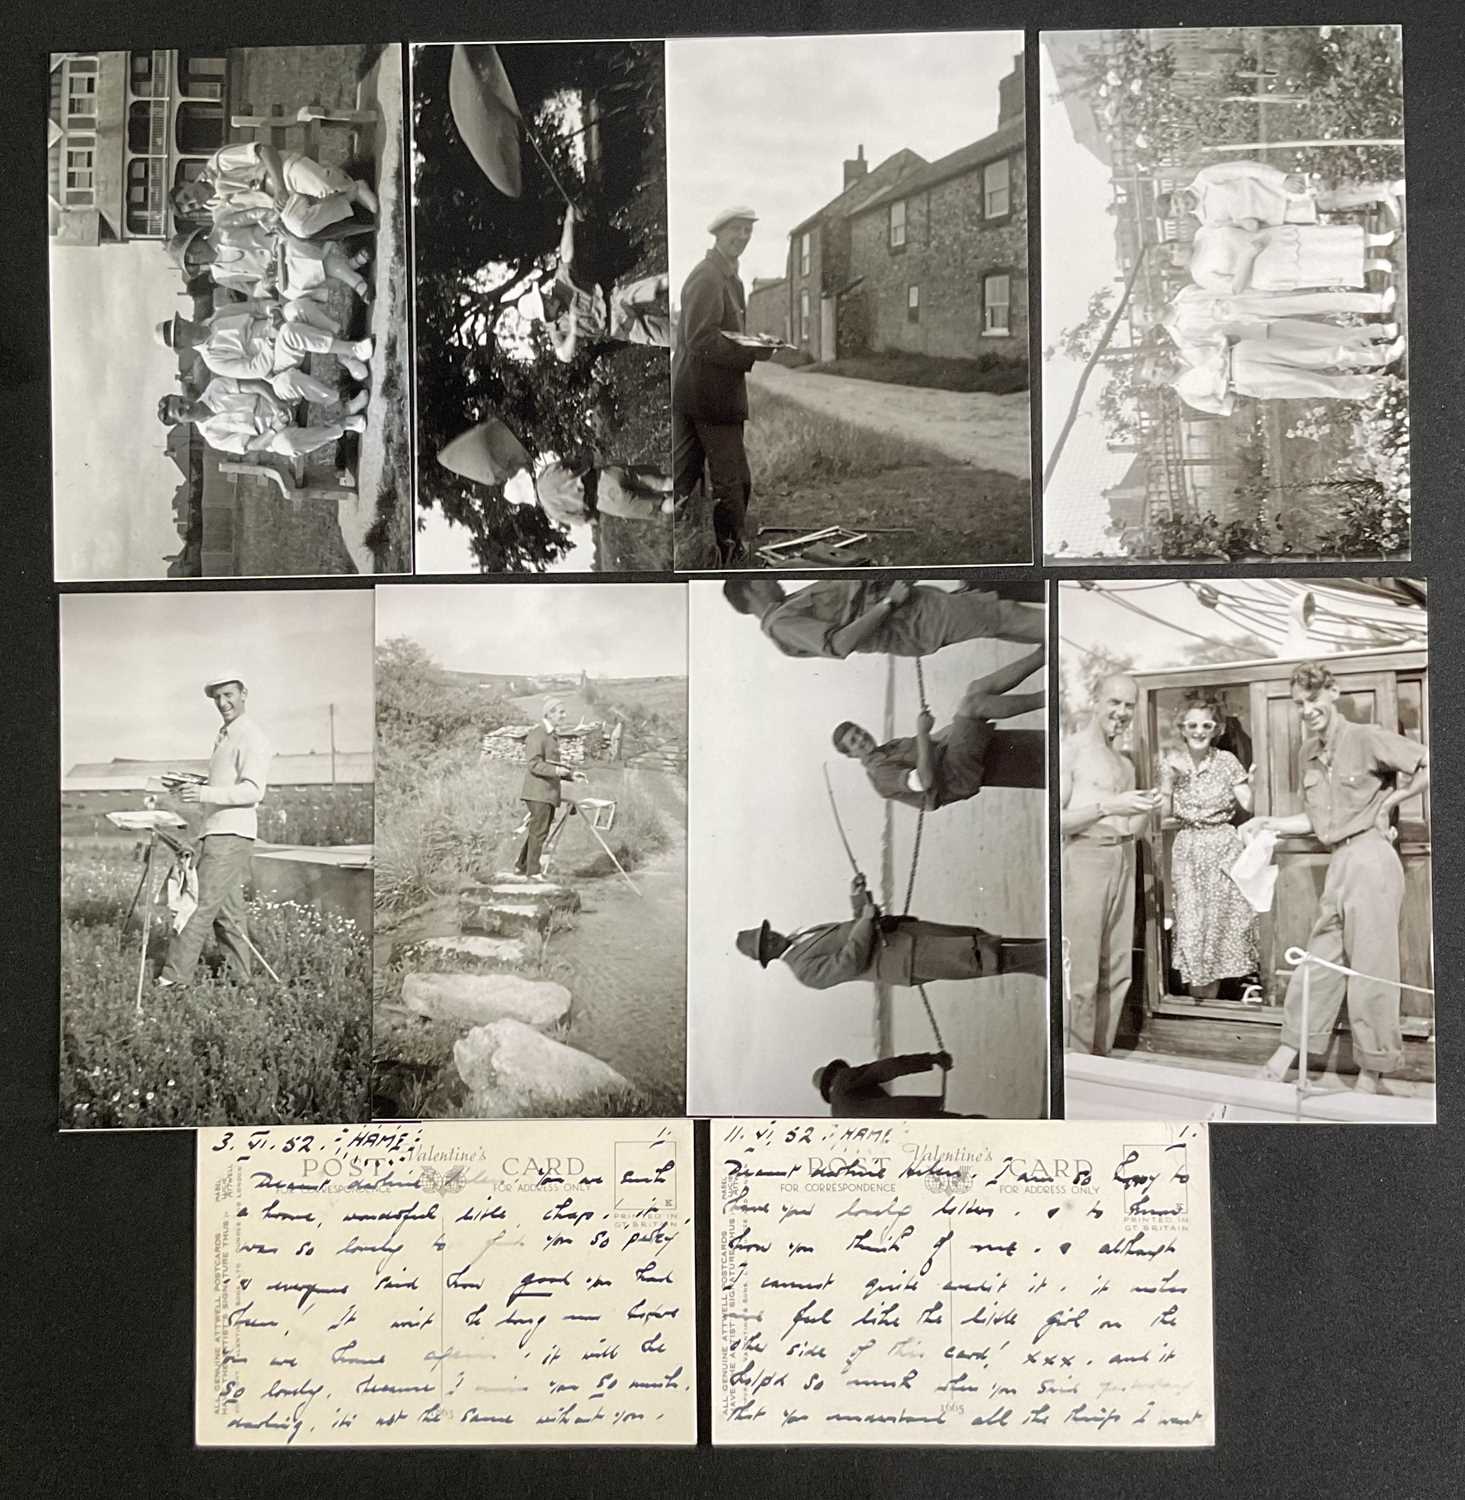 3. VI. 52. HAME 1.
Valentine's
POST CARD
FOR CORRESPONDENCE FOR ADDRESS ONLY
Dearest darling Helen. You are such
PRINTED IN
GT BRITAIN
a home, wonderful little chap, it
was so lovely to you so perky,
& everyone said how good you had
been! It won't be long now before
you are home again, it will be
so lovely, because I miss you so much,
darling, it's not the same without you.
ALL GENUINE ATTWELL POSTCARDS
HAVE THE ARTIST'S SIGNATURE THUS:-
MABEL
LUCIE
ATTWELL
11. VI. 52. HAME. 1.
Valentine's
POST CARD
FOR CORRESPONDENCE FOR ADDRESS ONLY
Dearest darling Helen, I am so happy to
have your lovely letters, & to know
PRINTED IN
GT BRITAIN
how you think of me. & although
I cannot quite credit it, it makes
me feel like the little girl on the
other side of this card! xxx, and it
helps so much when you said yesterday
that you understand all the things I want
1665
ALL GENUINE ATTWELL POSTCARDS
HAVE THE ARTIST'S SIGNATURE THUS:-
MABEL
LUCIE
ATTWELL